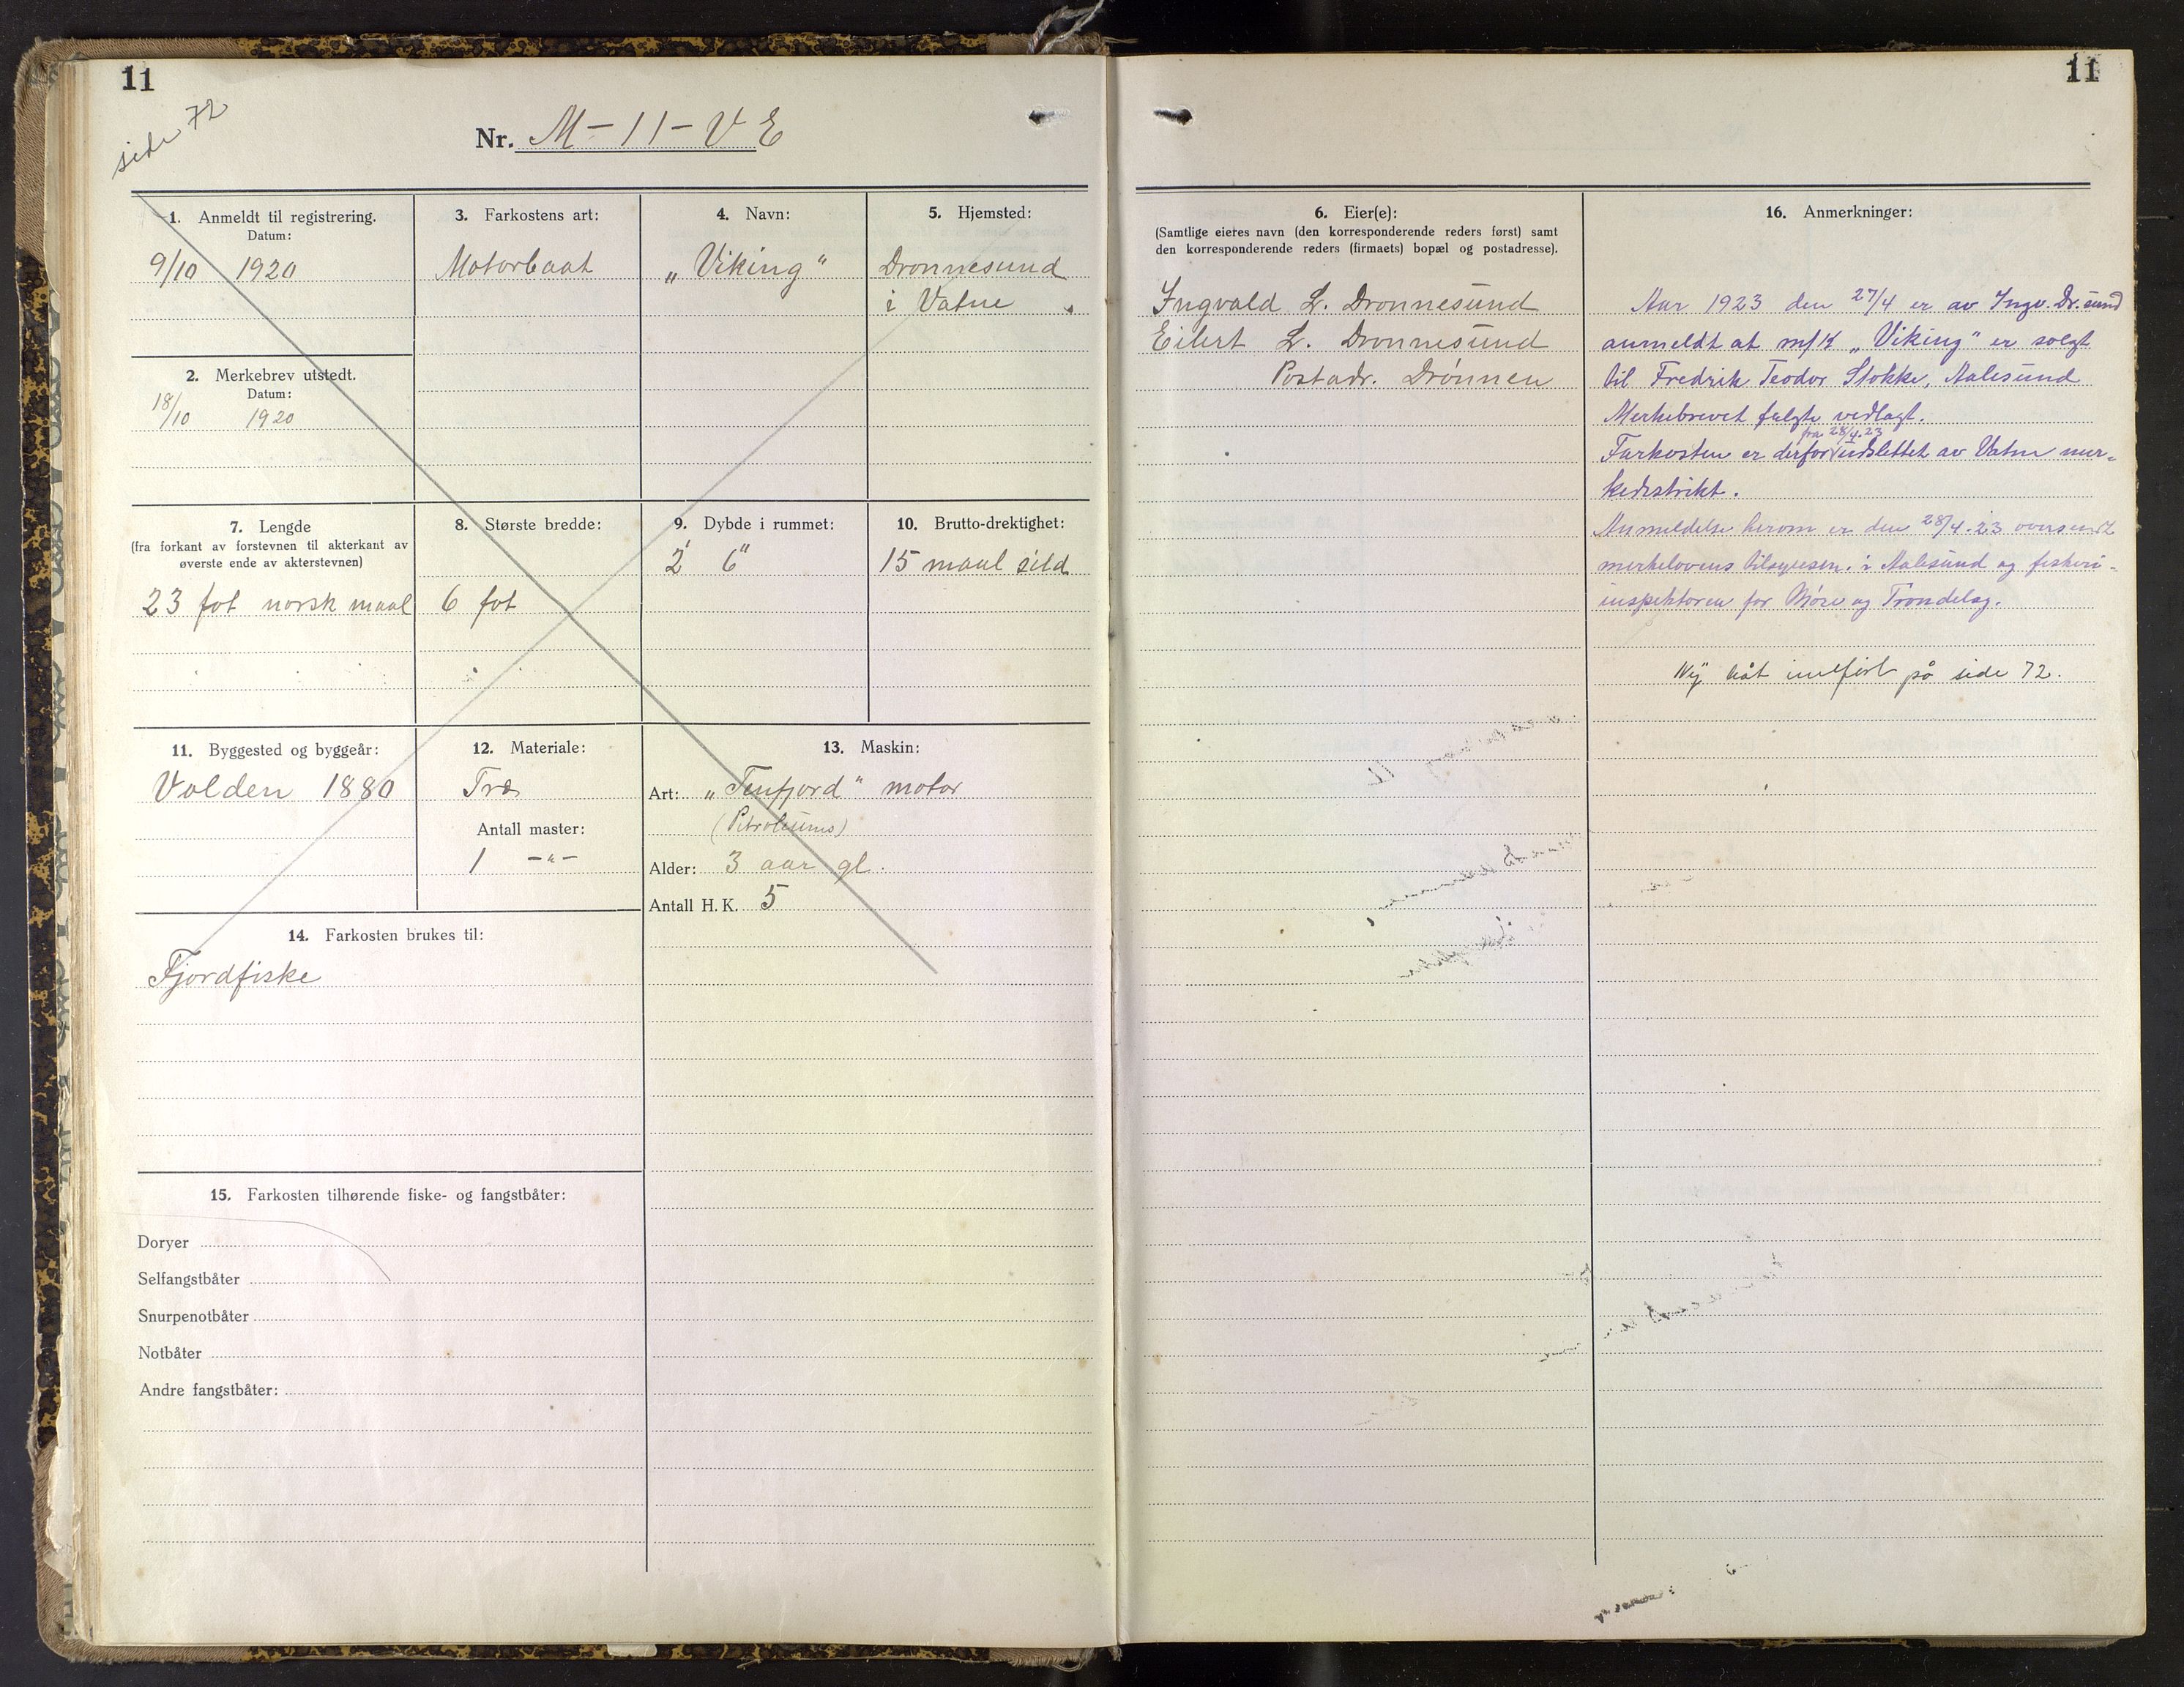 11
side 72
Nr. M - 11 - V E
1. Anmeldt til registrering.
Datum:
9/10 1920
2. Merkebrev utstedt.
Datum:
18/10 1920
3. Farkostens art:
Motorbaat
4. Navn:
„Viking“
5. Hjemsted:
Dronnesund
i Vatne
7. Lengde
(fra forkant av forstevnen til akterkant av
øverste ende av akterstevnen)
23 fot norsk maal
8. Største bredde:
6 fot
9. Dybde i rummet:
2' 6"
10. Brutto-drektighet:
15 maal sild
11. Byggested og byggeår:
Volden 1880
12. Materiale:
Træ
Antall master:
1 -"-
13. Maskin:
Art: „Tenfjord“ motor
(Petroleums)
Alder: 3 aar gl.
Antall H. K. 5
14. Farkosten brukes til:
Fjordfiske
15. Farkosten tilhørende fiske- og fangstbåter:
Doryer
Selfangstbåter
Snurpenotbåter
Notbåter
Andre fangstbåter:
11
6. Eier(e):
(Samtlige eieres navn (den korresponderende reders først) samt
den korresponderende reders (firmaets) bopæl og postadresse).
Ingvald L. Dronnesund
Eilert L. Dronnesund
Postadr. Drønnen
16. Anmerkninger:
Aar 1923 den 27/4 er av Ingv. Dr.sund
anmeldt at m/k „Viking“ er solgt
til Fredrik Teodor Stokke, Aalesund
Merkebrevet fulgte vedlagt.
fra 28/4. 23
Farkosten er derfor utslettet av Vatne mer-
kedistrikt.
Anmeldelse herom er den 28/4. 23 oversendt
merkelovens tilsynsm. i Aalesund og fiskeri-
inspektøren for Møre og Trøndelag.
Ny båt innført på side 72.